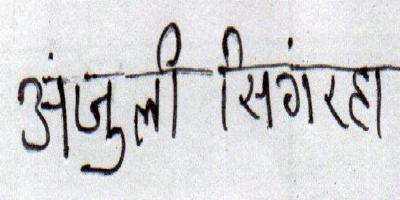 अंजुली सिगंरहा